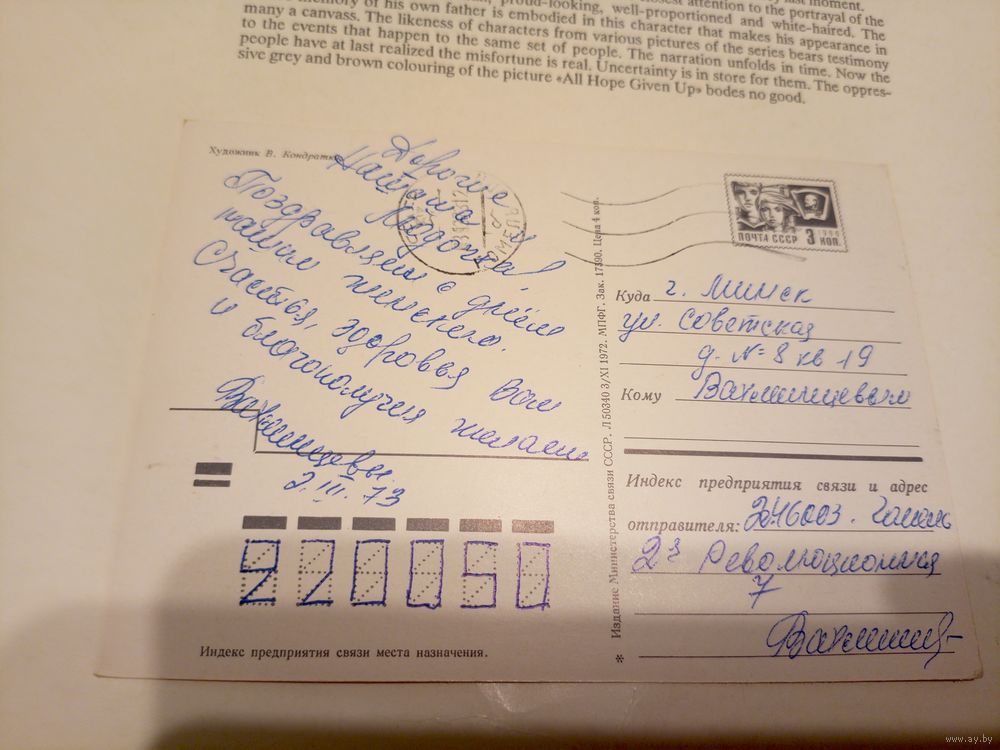 of his own father is embodied in this character that makes his appearance in
many a canvass. The likeness of characters from various pictures of the series bears testimony
to the events that happen to the same set of people. The narration unfolds in time. Now the
people have at last realized the misfortune is real. Uncertainty is in store for them. The oppres-
sive grey and brown colouring of the picture «All Hope Given Up» bodes no good.
Художник В. Кондратюк
Дорогие
Наташа
Лидочка!
Поздравляем с днём
нашим женским.
Счастья, здоровья Вам
и благополучия желаем
2.III.73
220050
Индекс предприятия связи места назначения.
Издание Министерства связи СССР. Л 50340 3/XI 1972. МПФГ. Зак. 17590. Цена 4 коп.
ПОЧТА СССР 3 КОП.
1966
Куда г. Минск
ул. Советская
д. №8 кв 19
Кому
Индекс предприятия связи и адрес
отправителя: 246003.
2я Революционная
7
www.ay.by